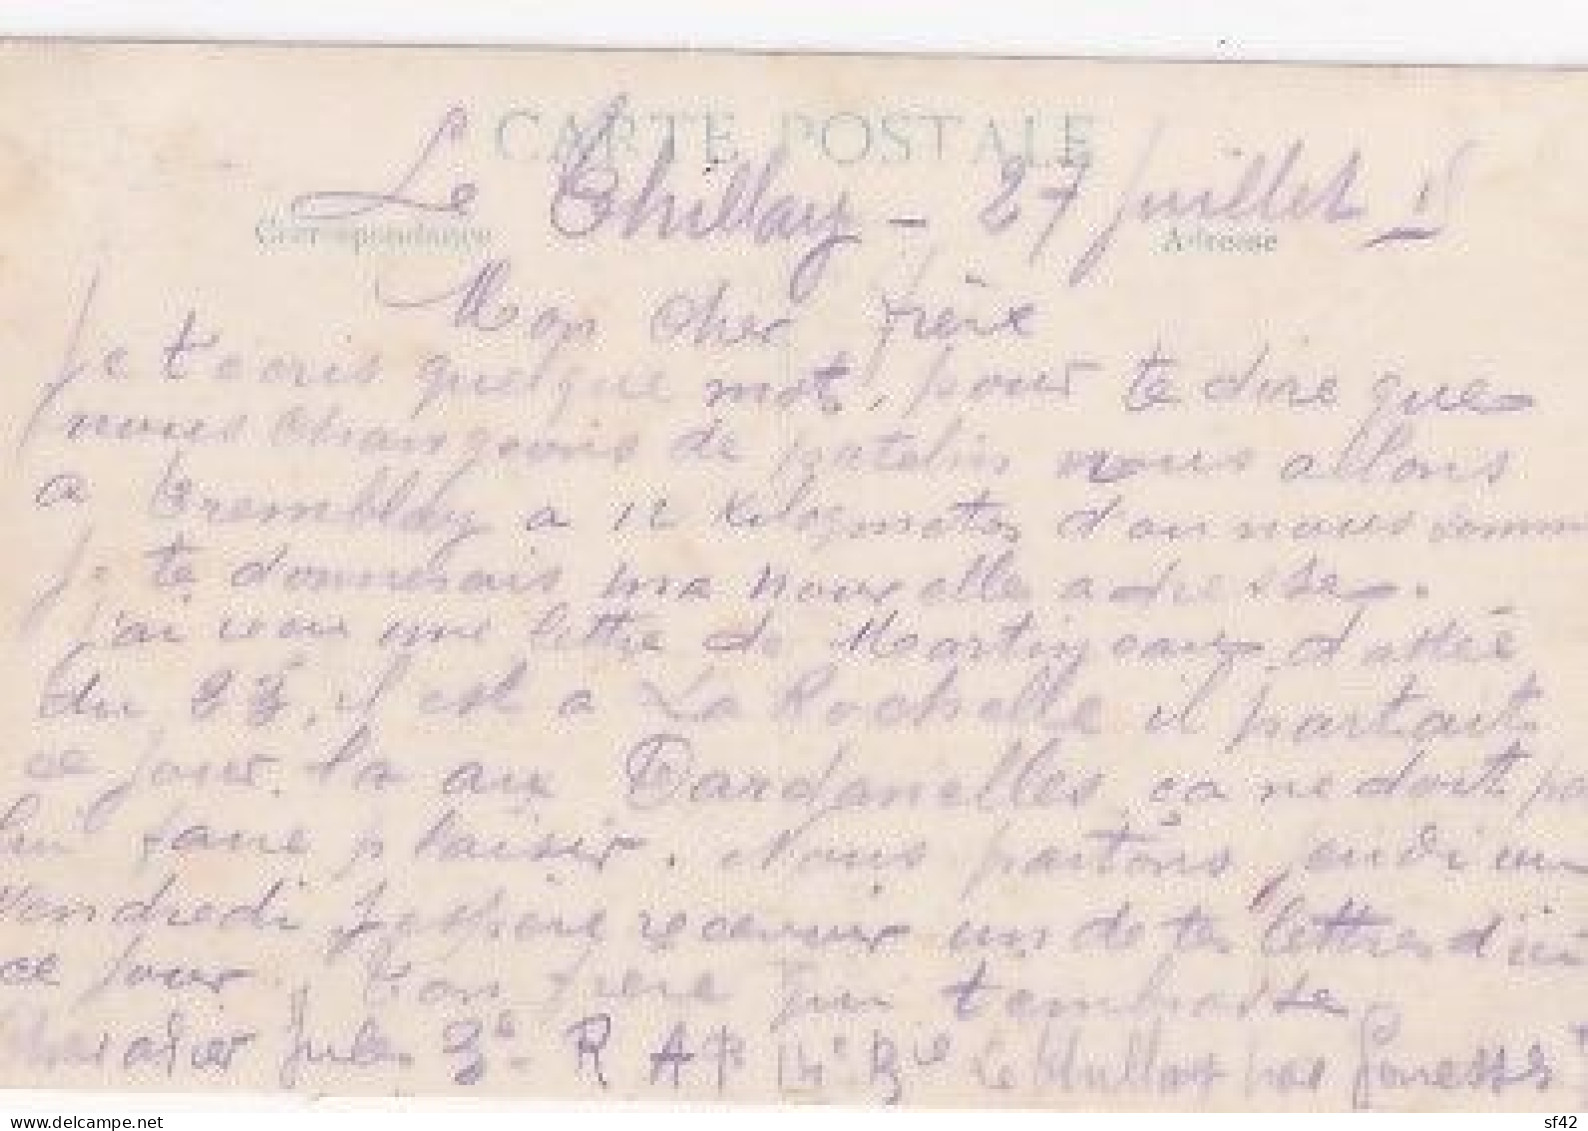 CARTE POSTALE
Correspondance Adresse
Le Thillay - 27 Juillet 15
Mon cher frère
Je técris quelque mot, pour te dire que
nous changeons de patelin nous allons
a Tremblay a 12 kilogmetres d'ou nous somm
Je te donnerais ma nouvelle adresse.
J'ai recu une lettre de Martineau dattée
du 23, il est a La Rochelle il partait
ce jour la aux Dardanelles, ça ne doit pa
lui faire plaisir. Nous partons jeudi ou
vendredi J'espère recevoir un de tes lettres d'ici
ce jour. Ton frère qui t'embrasse
Jules 3e R A P 14e Bie Le Thillay par Gonesse
delcampe.net
sf42